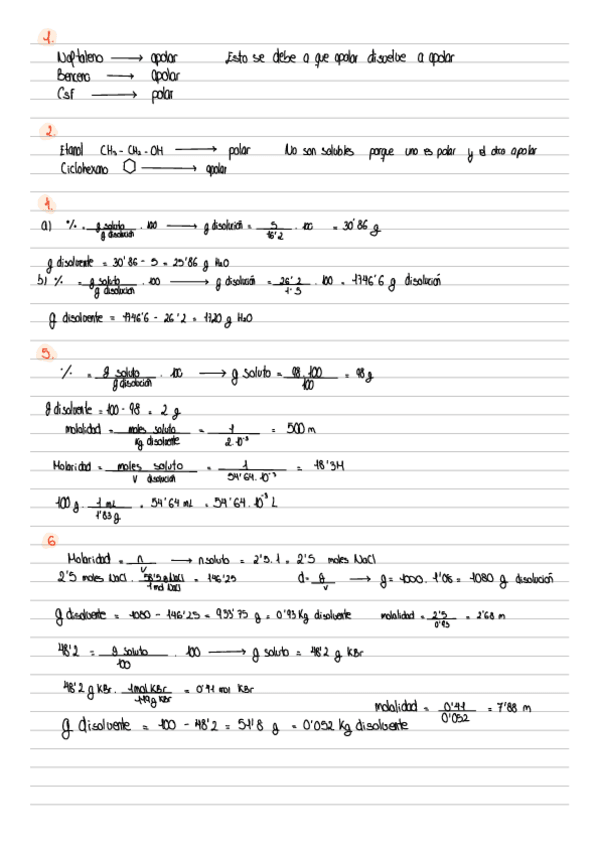 1.
Naftaleno ⟶ apolar Esto se debe a que apolar disuelve a apolar
Benceno ⟶ apolar
CsF ⟶ polar
2.
Etanol CH₃ - CH₂ - OH ⟶ polar No son solubles porque uno es polar y el otro apolar
Ciclohexano ⟶ apolar
4.
a) % = g soluto / g disolución · 100 ⟶ g disolución = 5 / 16'2 · 100 = 30'86 g
g disolvente = 30'86 - 5 = 25'86 g H₂O
b) % = g soluto / g disolución · 100 ⟶ g disolución = 26'2 / 1'5 · 100 = 1746'6 g disolución
g disolvente = 1746'6 - 26'2 = 1720 g H₂O
5.
% = g soluto / g disolución · 100 ⟶ g soluto = 98 · 100 / 100 = 98 g
g disolvente = 100 - 98 = 2 g
molalidad = moles soluto / Kg disolvente = 1 / 2·10⁻³ = 500 m
Molaridad = moles soluto / V disolución = 1 / 54'64·10⁻³ = 18'3M
100 g · 1 mL / 1'83 g = 54'64 mL = 54'64·10⁻³ L
6
Molaridad = n / V ⟶ n soluto = 2'5 · 1 = 2'5 moles NaCl
2'5 moles NaCl · 58'5 g NaCl / 1 mol NaCl = 146'25 d = g / v ⟶ g = 1000 · 1'08 = 1080 g disolución
g disolvente = 1080 - 146'25 = 933'75 g = 0'93 Kg disolvente molalidad = 2'5 / 0'93 = 2'68 m
48'2 = g soluto / 100 · 100 ⟶ g soluto = 48'2 g KBr
48'2 g KBr · 1 mol KBr / 119 g KBr = 0'41 mol KBr
molalidad = 0'41 / 0'052 = 7'88 m
g disolvente = 100 - 48'2 = 51'8 g = 0'052 Kg disolvente